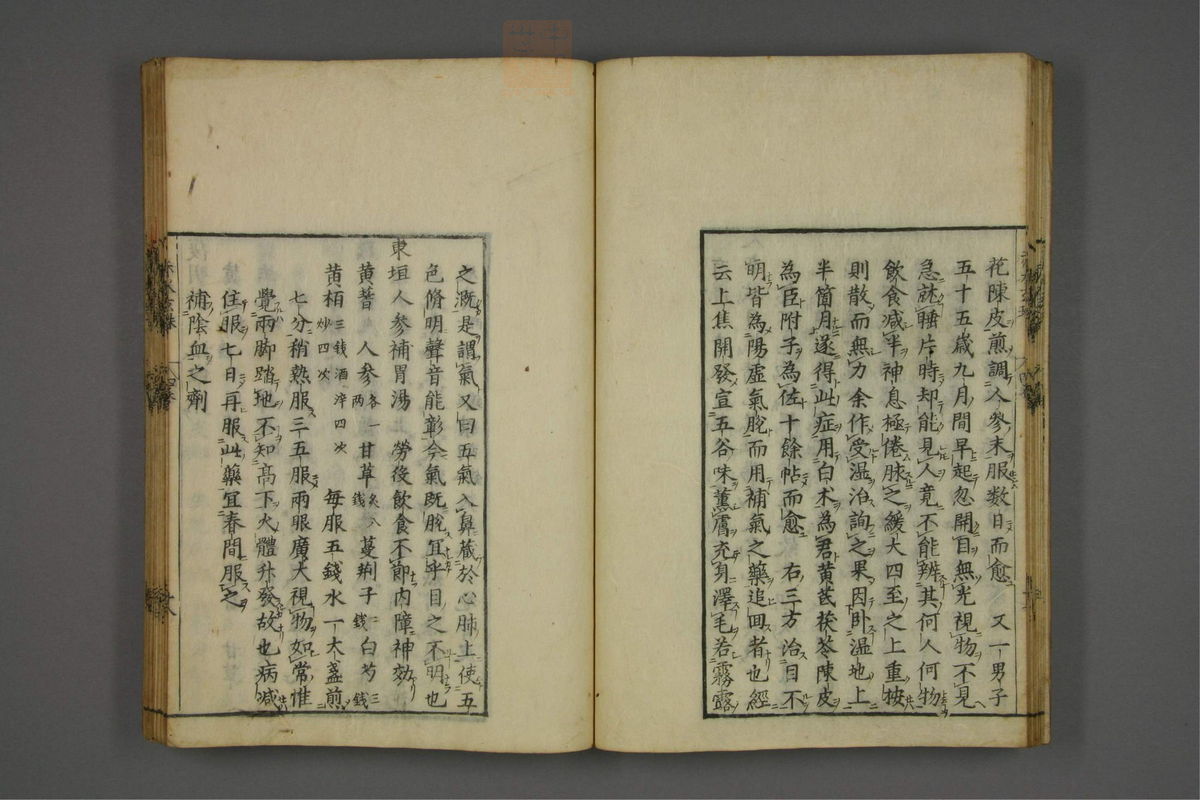 花陳皮煎調人參末服数日而愈 又一男子
五十五歳九月間早起忽開目無光視物不見
急就睡片時却能見人竟不能辨其何人何物
飲食减半神息極倦脉之緩大四至之上重按
則散而無力余作受湿治詢之果因卧湿地上
半箇月遂得此症用白木為君黄芪茯苓陳皮
為臣附子為佐十餘帖而愈 右三方治目不
明皆為陽虚氣脫而用補氣之藥追囬者也經
云上焦開發宣五谷味薫膚充身澤毛若霧露
之溉是謂氣又曰五氣入鼻藏於心肺上使五
色脩明聲音能彰今氣既脫宜乎目之不明也
東垣人參補胃湯 勞役飲食不節内障神効
黄耆 人参各一两 甘草炙八錢 蔓荊子二錢 白芍三錢
黄栢三錢酒淬四次炒四次 毎服五錢水一大盞煎
七分稍熟服三五服兩眼廣大視物如常惟
覺兩脚踏地不知髙下火體升發故也病减
住服七日再服此藥宜春間服之
補陰血之劑